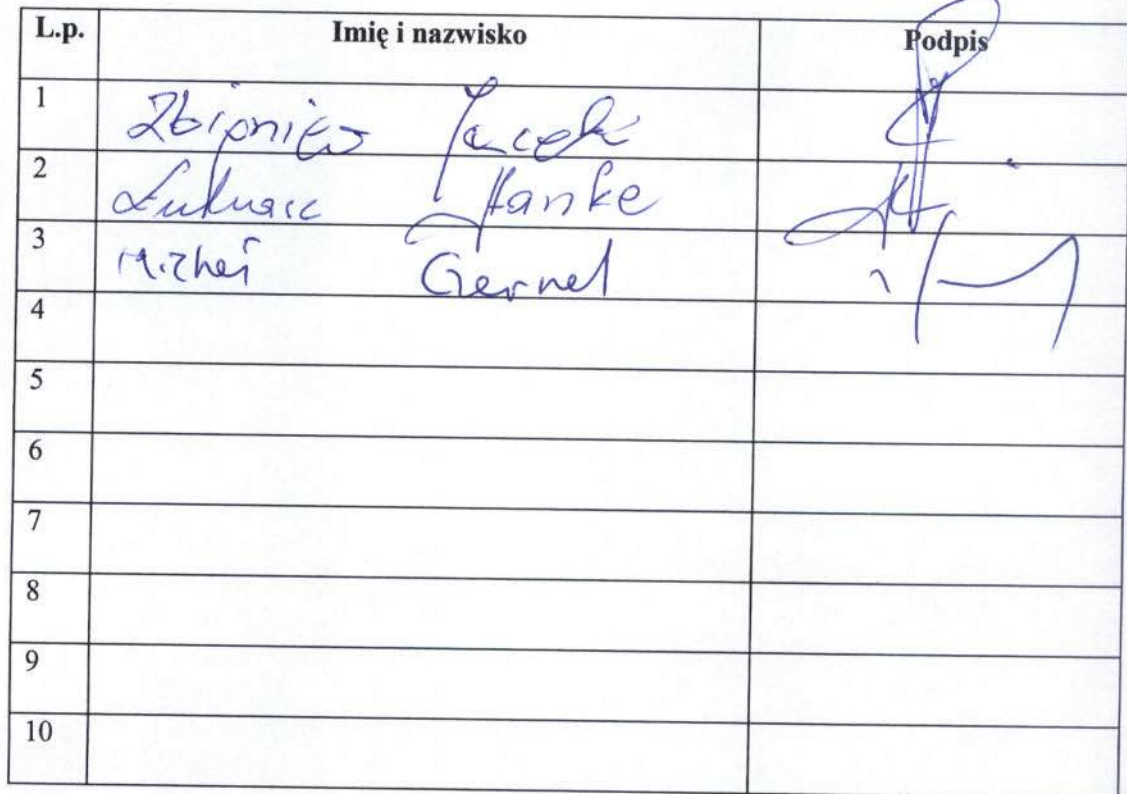 L.p. Imię i nazwisko Podpis
1 Zbigniew Jacek
2 Łukasz Hanke
3 Michał Giernel
4
5
6
7
8
9
10